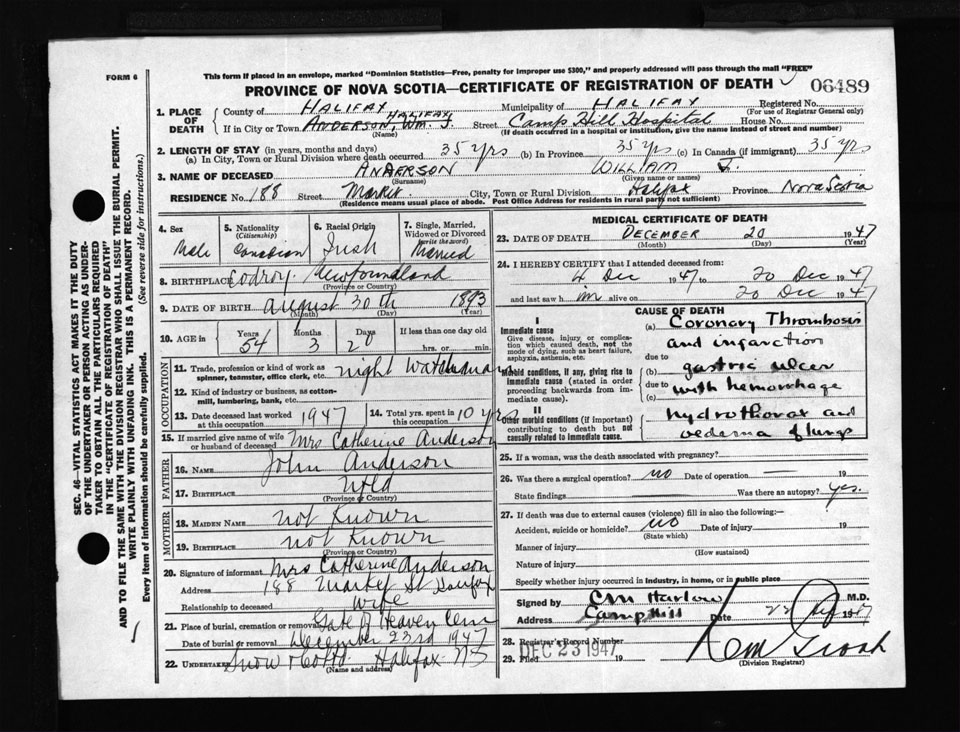 FORM 6
This form if placed in an envelope, marked "Dominion Statistics—Free, penalty for improper use $300," and properly addressed will pass through the mail "FREE"
PROVINCE OF NOVA SCOTIA—CERTIFICATE OF REGISTRATION OF DEATH
06489
1. PLACE OF DEATH
County of HALIFAX Municipality of HALIFAX Registered No.
(For use of Registrar General only)
If in City or Town HALIFAX ANDERSON, WM. J. Street Camp Hill Hospital House No.
(Name) (If death occurred in a hospital or institution, give the name instead of street and number)
2. LENGTH OF STAY (in years, months and days)
(a) In City, Town or Rural Division where death occurred 35 yrs (b) In Province 35 yrs (c) In Canada (if immigrant) 35 yrs
3. NAME OF DECEASED ANDERSON WILLIAM J.
(Surname) (Given name or names)
RESIDENCE No. 188 Street Market City, Town or Rural Division Halifax Province Nova Scotia
(Residence means usual place of abode. Post Office Address for residents in rural parts not sufficient)
4. Sex Male
5. Nationality (Citizenship) Canadian
6. Racial Origin Irish
7. Single, Married, Widowed or Divorced (write the word) Married
8. BIRTHPLACE Codroy. Newfoundland
(Province or Country)
9. DATE OF BIRTH August 30th 1893
(Month) (Day) (Year)
10. AGE in Years 54 Months 3 Days 20 If less than one day old
hrs. or min.
OCCUPATION
11. Trade, profession or kind of work as spinner, teamster, office clerk, etc. night Watchman
12. Kind of industry or business, as cotton-mill, lumbering, bank, etc.
13. Date deceased last worked at this occupation 1947
14. Total yrs. spent in this occupation 10 yrs
15. If married give name of wife or husband of deceased Mrs Catherine Anderson
FATHER
16. Name John Anderson
17. Birthplace Nfld
(Province or Country)
MOTHER
18. Maiden Name not Known
19. Birthplace not Known
(Province or Country)
20. Signature of informant Mrs Catherine Anderson
Address 188 Market St Halifax
Relationship to deceased wife
21. Place of burial, cremation or removal Gate of Heaven Cem
Date of burial or removal December 23rd 1947
22. Undertaker Snow & Co Ltd Halifax NS
(Name and address)
MEDICAL CERTIFICATE OF DEATH
23. DATE OF DEATH DECEMBER 20 1947
(Month) (Day) (Year)
24. I HEREBY CERTIFY that I attended deceased from:
4 Dec 1947 to 20 Dec 1947
and last saw him alive on 20 Dec 1947
CAUSE OF DEATH
I
Immediate cause
Give disease, injury or complication which caused death, not the mode of dying, such as heart failure, asphyxia, asthenia, etc.
(a) Coronary Thrombosis
and infarction
due to
Morbid conditions, if any, giving rise to immediate cause (stated in order proceeding backwards from immediate cause).
(b) gastric ulcer
due to with hemorrhage
(c)
II
Other morbid conditions (if important) contributing to death but not causally related to immediate cause.
hydrothorax and
oedema of lungs
25. If a woman, was the death associated with pregnancy?
26. Was there a surgical operation? no Date of operation 19
State findings Was there an autopsy? yes.
27. If death was due to external causes (violence) fill in also the following:—
Accident, suicide or homicide? no Date of injury 19
(State which)
Manner of injury
(How sustained)
Nature of injury
Specify whether injury occurred in industry, in home, or in public place
Signed by CM Harlow M.D.
Address Camp Hill Date 22 1947
28. Registrar's Record Number
29. Filed DEC 23 1947 19
(Division Registrar)
SEC. 46—VITAL STATISTICS ACT MAKES IT THE DUTY
OF THE UNDERTAKER OR PERSON ACTING AS UNDER-
TAKER TO OBTAIN ALL THE PARTICULARS REQUIRED
IN THE "CERTIFICATE OF REGISTRATION OF DEATH"
AND TO FILE THE SAME WITH THE DIVISION REGISTRAR WHO SHALL ISSUE THE BURIAL PERMIT.
WRITE PLAINLY WITH UNFADING INK. THIS IS A PERMANENT RECORD.
Every item of information should be carefully supplied. (See reverse side for instructions.)